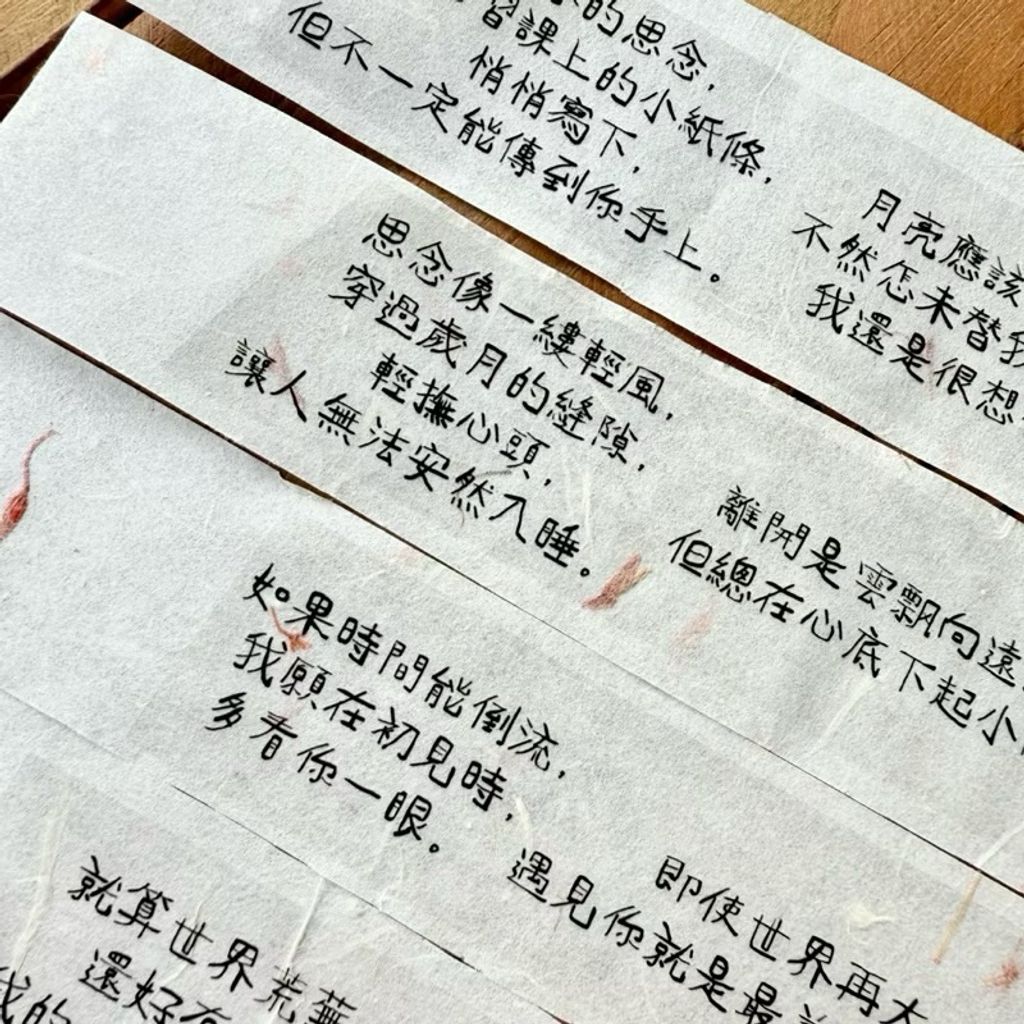 的思念，
習課上的小紙條，
悄悄寫下，
但不一定能傳到你手上。
月亮應該
不然怎未替我
我還是很想
思念像一縷輕風，
穿過歲月的縫隙，
輕撫心頭，
讓人無法安然入睡。
離開是雲飄向遠
但總在心底下起小
如果時間能倒流，
我願在初見時，
多看你一眼。
即使世界再大
遇見你就是最
就算世界荒蕪
還好有
我的